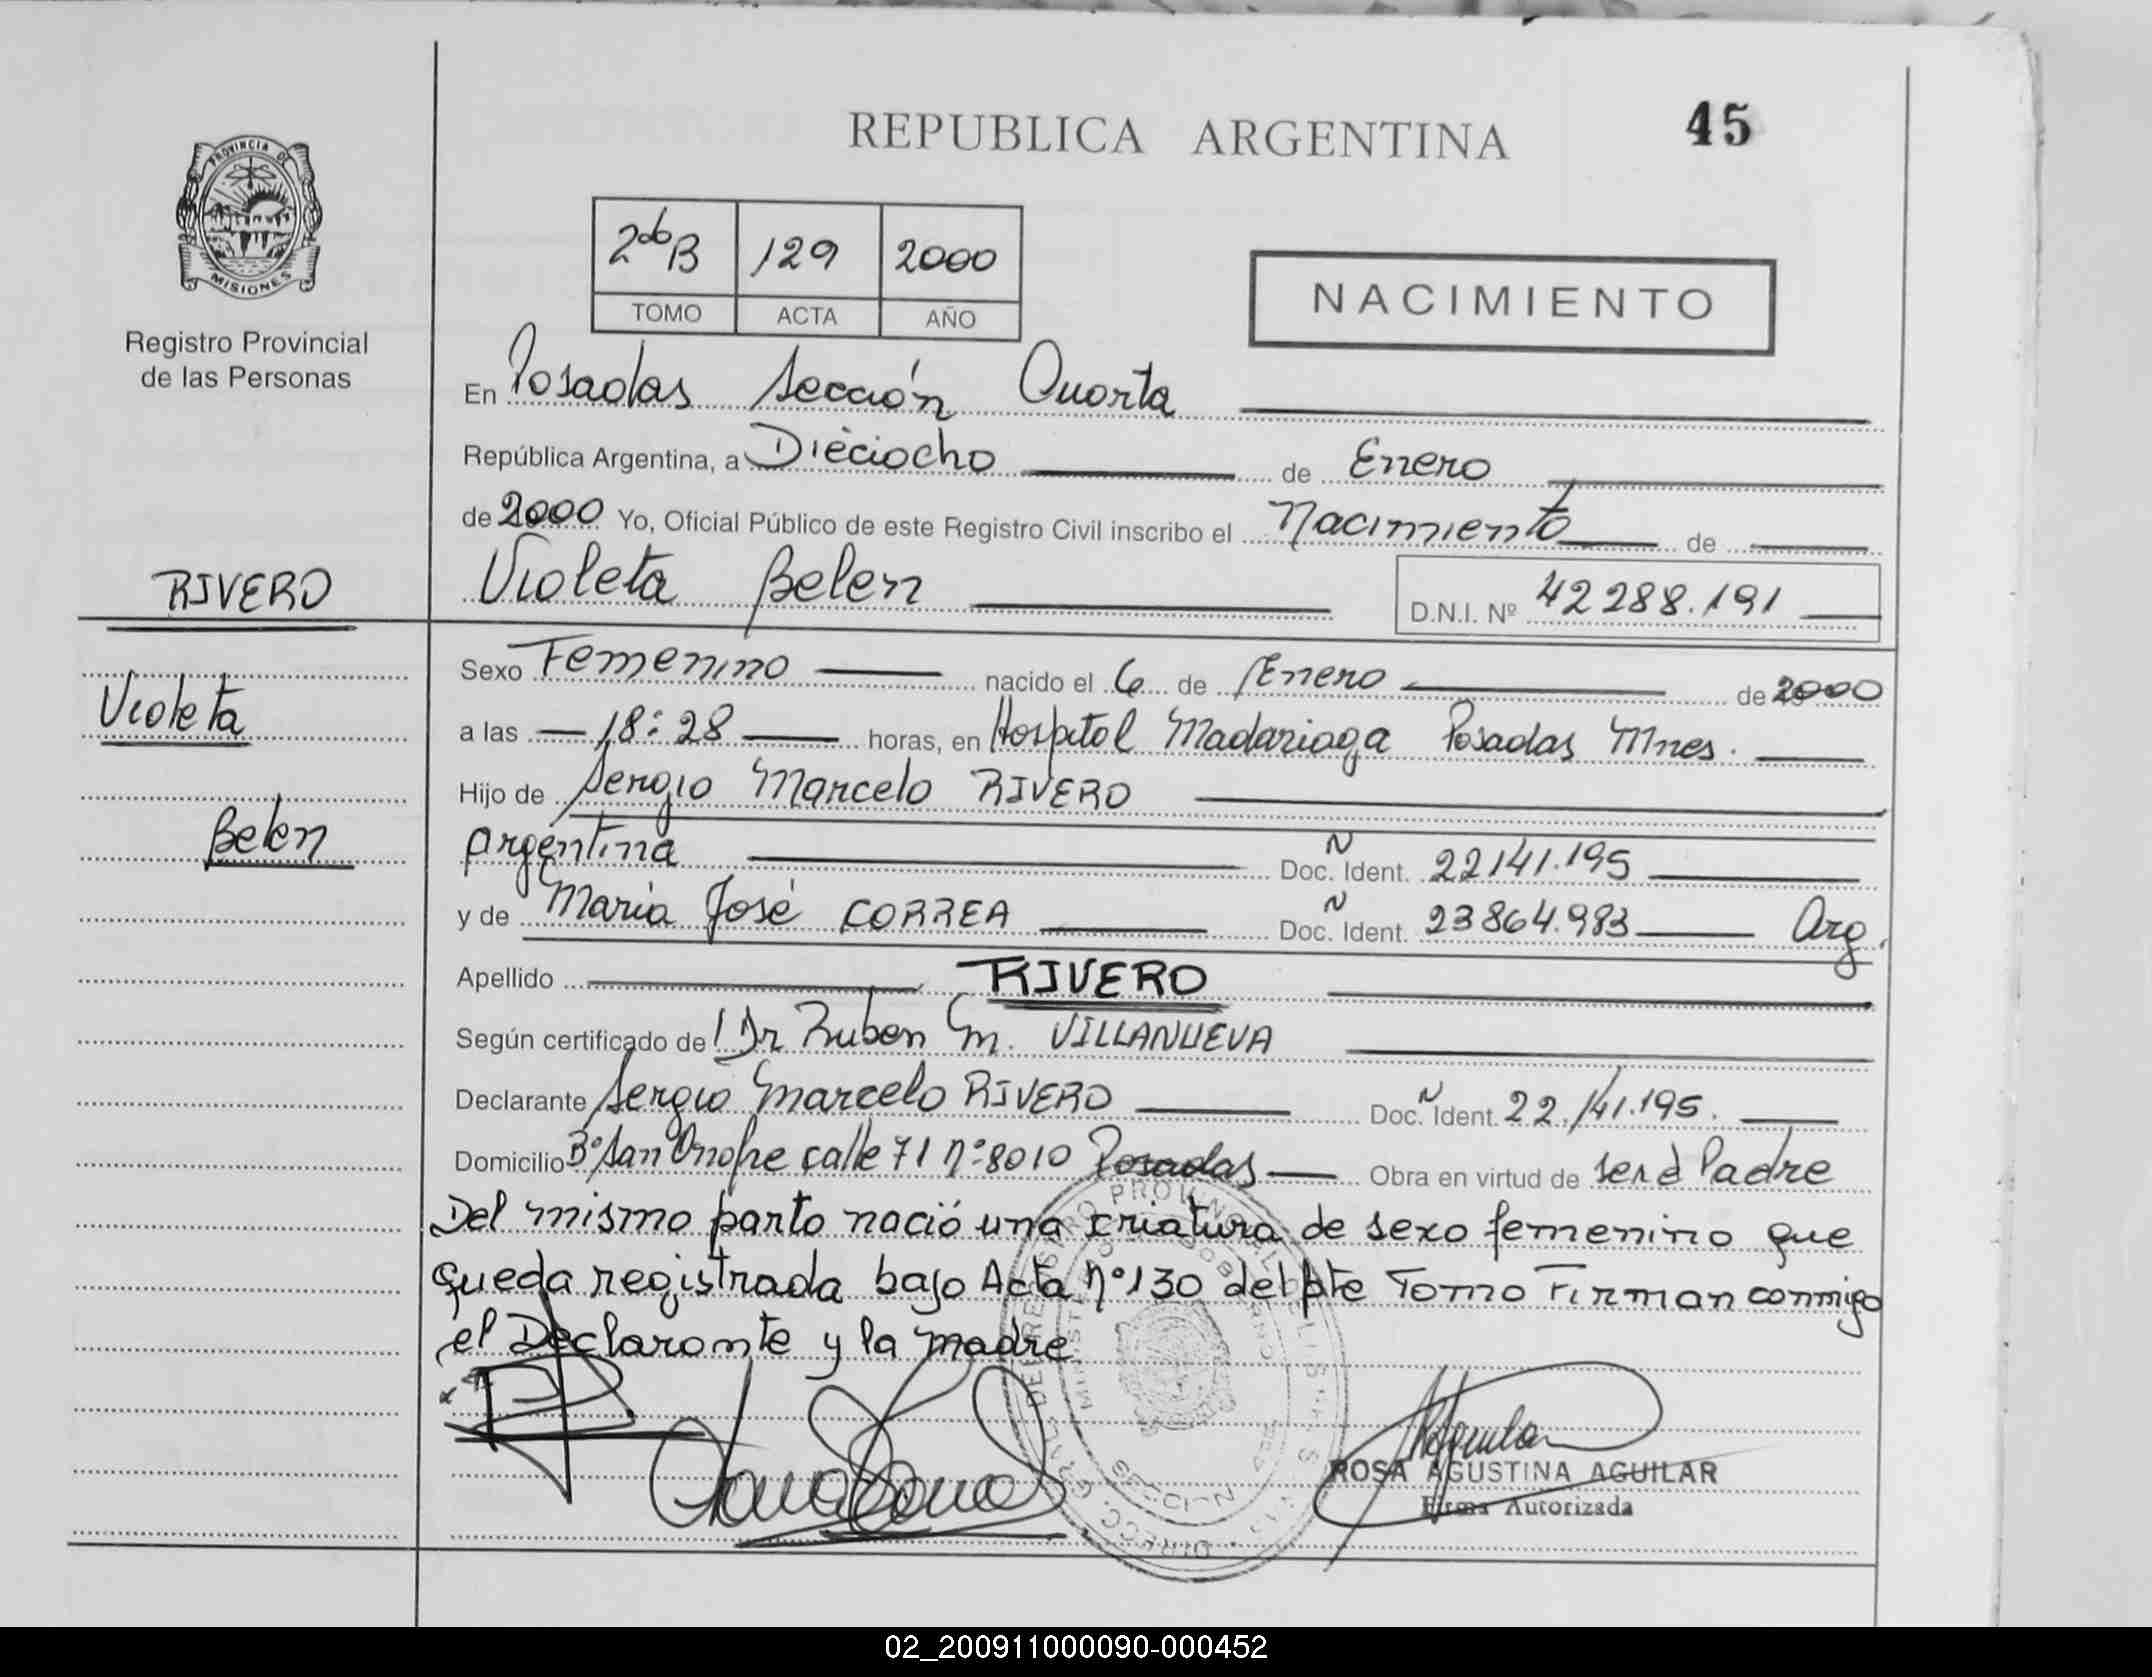 REPUBLICA ARGENTINA
45
PROVINCIA DE
MISIONES
Registro Provincial
de las Personas
2do B 129 2000
TOMO ACTA AÑO
NACIMIENTO
En Posadas Sección Cuarta
República Argentina, a Dieciocho de Enero
de 2000 Yo, Oficial Público de este Registro Civil inscribo el Nacimiento de
RIVERO
Violeta Belen D.N.I. Nº 42288.191
Sexo Femenino nacido el 6 de Enero de 2000
Violeta
a las 18:28 horas, en Hospital Madariaga Posadas Mnes.
Hijo de Sergio Marcelo RIVERO
Belen
Argentina Doc. Ident. N 22141.195
y de Maria José CORREA Doc. Ident. N 23864.983 Arg.
Apellido RIVERO
Según certificado de Dr Ruben M. VILLANUEVA
Declarante Sergio Marcelo RIVERO Doc. Ident. N 22.141.195.
Domicilio Bº San Onofre calle 71 nº 8010 Posadas Obra en virtud de ser el Padre
Del mismo parto nació una criatura de sexo femenino que
queda registrada bajo Acta nº 130 del pte Tomo Firman conmigo
el Declarante y la madre
ROSA AGUSTINA AGUILAR
Firma Autorizada
02_200911000090-000452